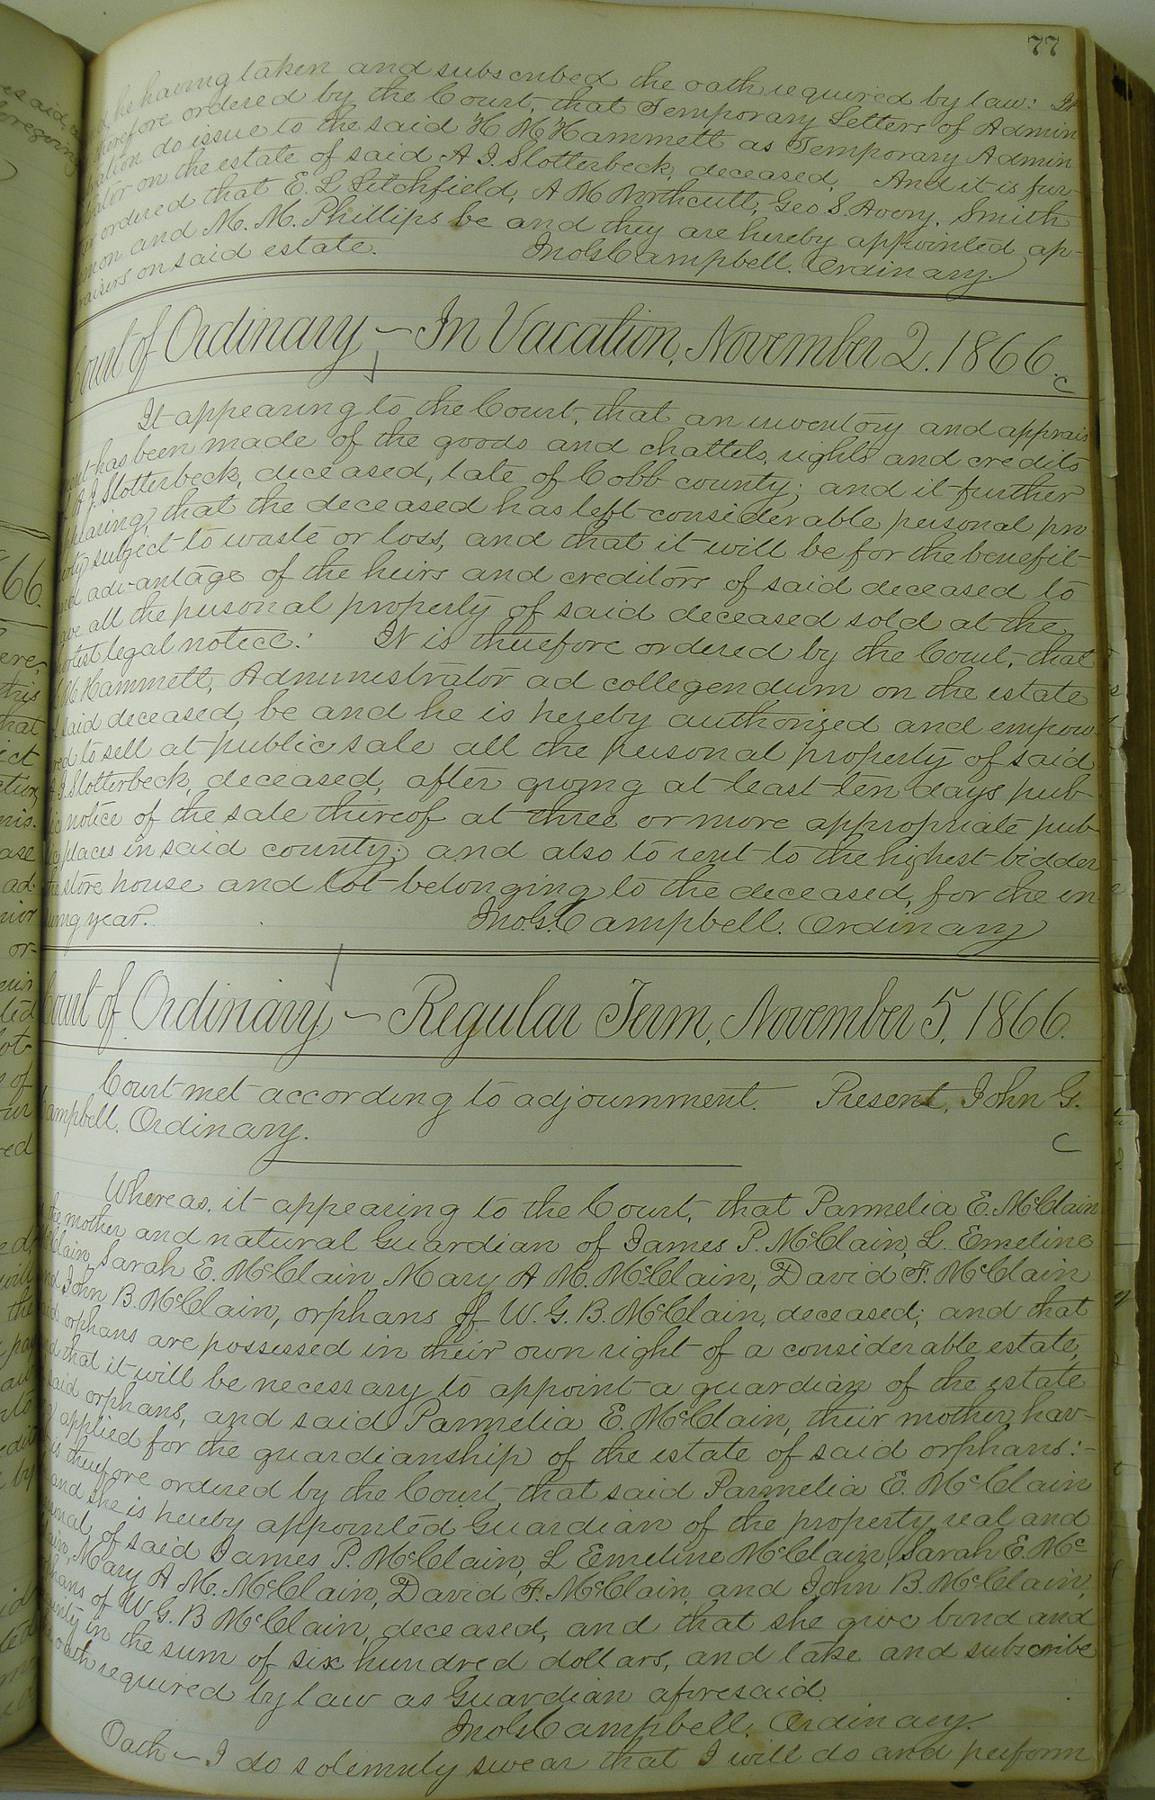 77
he having taken and subscribed the oath required by law: It
therefore ordered by the Court, that Temporary Letters of Admin
tration do issue to the said H M Hammett as Temporary Admin
trator on the estate of said A J. Slotterbeck, deceased. And it is fur-
ordered that E. L Litchfield, A M Northcutt, Geo S. Avery, Smith
and M. M. Phillips be and they are hereby appointed ap-
raisers on said estate. Jno. G. Campbell. Ordinary.
Court of Ordinary – In Vacation, November 2. 1866.
It appearing to the Court, that an inventory and apprais
ment has been made of the goods and chattels, rights and credits
A J. Slotterbeck, deceased, late of Cobb county; and it further
pearing, that the deceased has left considerable personal pro
erty subject to waste or loss, and that it will be for the benefit
and advantage of the heirs and creditors of said deceased to
have all the personal property of said deceased sold at the
shortest legal notice: It is therefore ordered by the Court, that
M Hammett, Administrator ad collegendum on the estate
said deceased, be and he is hereby authorized and empow
red to sell at public sale all the personal property of said
A J. Slotterbeck, deceased, after giving at least ten days pub-
lic notice of the sale thereof at three or more appropriate pub-
lic places in said county; and also to rent to the highest bidder
the store house and lot belonging to the deceased, for the en
suing year. Jno. G. Campbell. Ordinary
Court of Ordinary – Regular Term, November 5, 1866.
Court met according to adjournment. Present, John G.
Campbell. Ordinary.
Whereas, it appearing to the Court, that Parmelia E. McClain
the mother and natural Guardian of James P. McClain, L. Emeline
McClain, Sarah E. McClain, Mary A M. McClain, David F. McClain
and John B. McClain, orphans of W. G. B. McClain, deceased; and that
said orphans are possessed in their own right of a considerable estate,
and that it will be necessary to appoint a guardian of the estate
said orphans, and said Parmelia E. McClain, their mother, hav-
applied for the guardianship of the estate of said orphans:-
is therefore ordered by the Court that said Parmelia E. McClain
and she is hereby appointed Guardian of the property real and
personal of said James P. McClain, L Emeline McClain, Sarah E. Mc
Clain, Mary A M. McClain, David F. McClain, and John B. McClain,
orphans of W G. B McClain, deceased, and that she give bond and
in the sum of six hundred dollars, and take and subscribe
oath required by law as Guardian aforesaid.
Jno. G. Campbell. Ordinary.
Oath – I do solemnly swear that I will do and perform